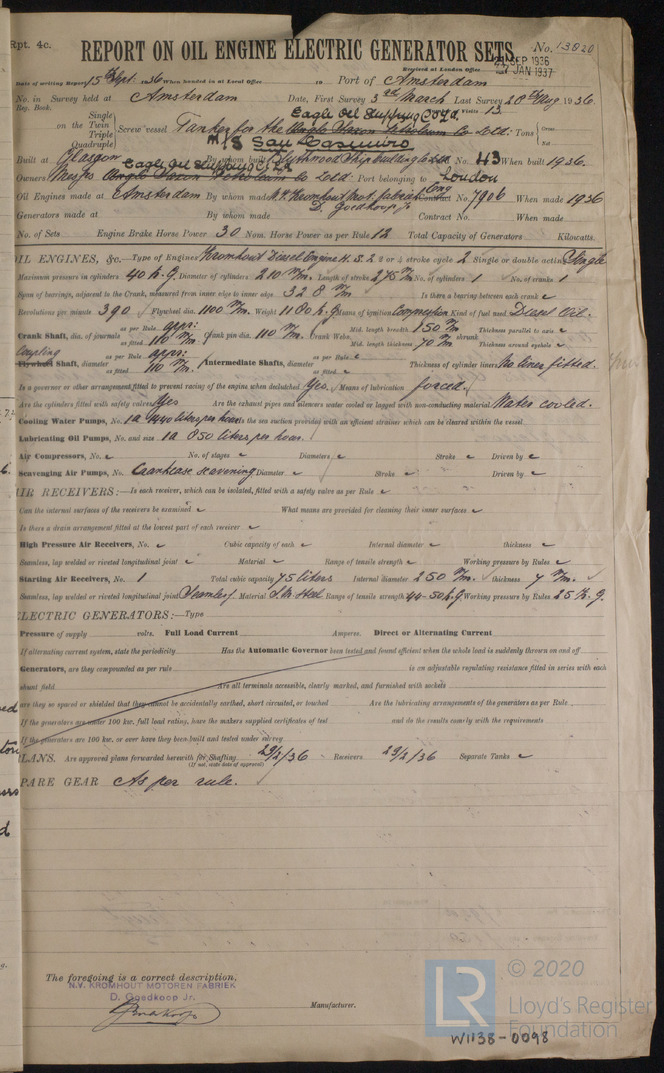 Rpt. 4c.
REPORT ON OIL ENGINE ELECTRIC GENERATOR SETS.
No. 13020
Received at London Office 24 SEP 1936
JAN 1937
Date of writing Report 15th Sept. 1936 When handed in at Local Office 19 Port of Amsterdam
No. in Survey held at Amsterdam Date, First Survey 3rd March Last Survey 28th Aug 1936
Reg. Book. Number of Visits 13
Eagle Oil Shipping Co Ld.
Single
on the Twin
Triple
Quadruple
Screw vessel Tanker for the Anglo Saxon Petroleum Co Ltd. Tons Gross Net
M/S San Casimiro
Built at Glasgow By whom built Blythswood Ship building Ltd Yard No. 43 When built 1936.
Eagle Oil Shipping Co Ld.
Owners Messrs Anglo Saxon Petroleum Co Ltd. Port belonging to London
Oil Engines made at Amsterdam By whom made Kromhout Mot. fabriek Contract No. 7906 When made 1936
D. Goedkoop Jr
Generators made at By whom made Contract No. When made
No. of Sets Engine Brake Horse Power 30 Nom. Horse Power as per Rule 12 Total Capacity of Generators Kilowatts.
OIL ENGINES, &c.—Type of Engines Kromhout Diesel Engine H.S. 2 or 4 stroke cycle 2 Single or double acting Single
Maximum pressure in cylinders 40 k.g. Diameter of cylinders 210 m/m. Length of stroke 275 m/m No. of cylinders 1 No. of cranks 1
Span of bearings, adjacent to the Crank, measured from inner edge to inner edge 328 m/m Is there a bearing between each crank
Revolutions per minute 390 Flywheel dia. 1100 m/m. Weight 1180 k.g. Means of ignition Compression Kind of fuel used Diesel Oil.
Crank Shaft, dia. of journals as per Rule appr: as fitted 110 m/m. Crank pin dia. 110 m/m. Crank Webs Mid. length breadth 150 m/m Mid. length thickness 70 m/m shrunk Thickness parallel to axis Thickness around eyehole
Coupling
Flywheel Shaft, diameter as per Rule appr: as fitted 110 m/m. Intermediate Shafts, diameter as per Rule as fitted Thickness of cylinder liners No liner fitted.
Is a governor or other arrangement fitted to prevent racing of the engine when declutched Yes. Means of lubrication forced.
Are the cylinders fitted with safety valves Yes Are the exhaust pipes and silencers water cooled or lagged with non-conducting material Water cooled.
Cooling Water Pumps, No. 1 a 1440 liters per hour. Is the sea suction provided with an efficient strainer which can be cleared within the vessel
Lubricating Oil Pumps, No. and size 1 a 850 liters per hour.
Air Compressors, No. No. of stages Diameters Stroke Driven by
Scavenging Air Pumps, No. Crankcase scavening Diameter Stroke Driven by
AIR RECEIVERS:—Is each receiver, which can be isolated, fitted with a safety valve as per Rule
Can the internal surfaces of the receivers be examined What means are provided for cleaning their inner surfaces
Is there a drain arrangement fitted at the lowest part of each receiver
High Pressure Air Receivers, No. Cubic capacity of each Internal diameter thickness
Seamless, lap welded or riveted longitudinal joint Material Range of tensile strength Working pressure by Rules
Starting Air Receivers, No. 1 Total cubic capacity 75 liters Internal diameter 250 m/m. thickness 7 m/m.
Seamless, lap welded or riveted longitudinal joint Seamless Material S.M. Steel Range of tensile strength 44-50 k.g Working pressure by Rules 25 k.g.
ELECTRIC GENERATORS:—Type
Pressure of supply volts. Full Load Current Amperes. Direct or Alternating Current
If alternating current system, state the periodicity Has the Automatic Governor been tested and found efficient when the whole load is suddenly thrown on and off
Generators, are they compounded as per rule is an adjustable regulating resistance fitted in series with each
shunt field Are all terminals accessible, clearly marked, and furnished with sockets
are they so spaced or shielded that they cannot be accidentally earthed, short circuited, or touched Are the lubricating arrangements of the generators as per Rule
If the generators are under 100 kw. full load rating, have the makers supplied certificates of test and do the results comply with the requirements
If the generators are 100 kw. or over have they been built and tested under survey
PLANS. Are approved plans forwarded herewith for Shafting 29/2/36 Receivers 29/2/36 Separate Tanks
(If not, state date of approval)
SPARE GEAR As per rule.
The foregoing is a correct description,
N.V. KROMHOUT MOTOREN FABRIEK
D. Goedkoop Jr.
Manufacturer.
© 2020
LR
Lloyd's Register
Foundation
W1138-0098